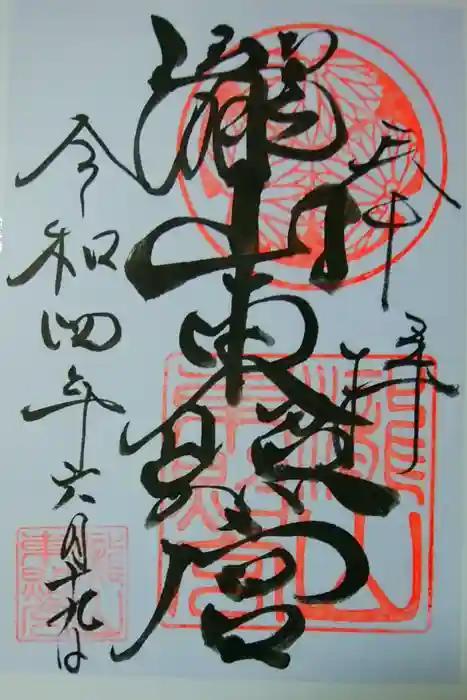 奉拝
瀧山東照宮
令和四年六月十九日
瀧山
東照宮
瀧山
東照宮